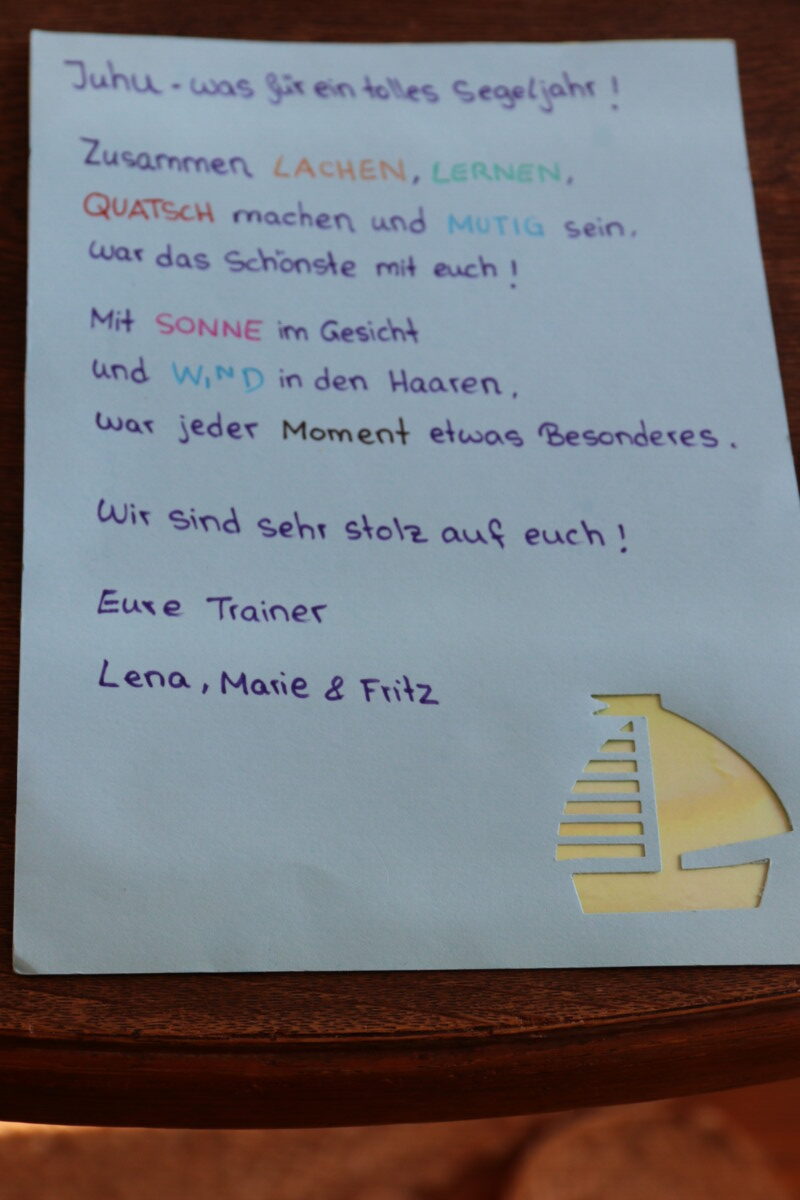 Juhu - was für ein tolles Segeljahr!
Zusammen LACHEN, LERNEN,
QUATSCH machen und MUTIG sein,
war das Schönste mit euch!
Mit SONNE im Gesicht
und WIND in den Haaren,
war jeder Moment etwas Besonderes.
Wir sind sehr stolz auf euch!
Eure Trainer
Lena, Marie & Fritz